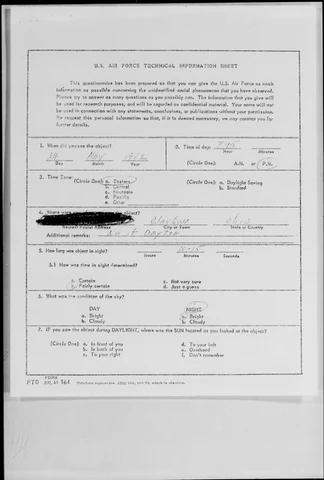 U.S. AIR FORCE TECHNICAL INFORMATION SHEET
This questionnaire has been prepared so that you can give the U.S. Air Force as much
information as possible concerning the unidentified aerial phenomenon that you have observed.
Please try to answer as many questions as you possibly can. The information that you give will
be used for research purposes, and will be regarded as confidential material. Your name will not
be used in connection with any statements, conclusions, or publications without your permission.
We request this personal information so that, if it is deemed necessary, we may contact you for
further details.
1. When did you see the object?
Nov
Day Month Year
2. Time of day:
Hour Minutes
(Circle One): A.M. or P.M.
3. Time Zone:
(Circle One): a. Eastern
b. Central
c. Mountain
d. Pacific
e. Other
(Circle One): a. Daylight Saving
b. Standard
4. Where were you when you saw the object?
Ohio
Nearest Postal Address City or Town State or County
Additional remarks: of Dayton
5. How long was object in sight? 10-15
Hours Minutes Seconds
5.1 How was time in sight determined?
a. Certain c. Not very sure
b. Fairly certain d. Just a guess
6. What was the condition of the sky?
DAY NIGHT
a. Bright a. Bright
b. Cloudy b. Cloudy
7. IF you saw the object during DAYLIGHT, where was the SUN located as you looked at the object?
(Circle One): a. In front of you d. To your left
b. In back of you e. Overhead
c. To your right f. Don't remember
FORM
FTD 164